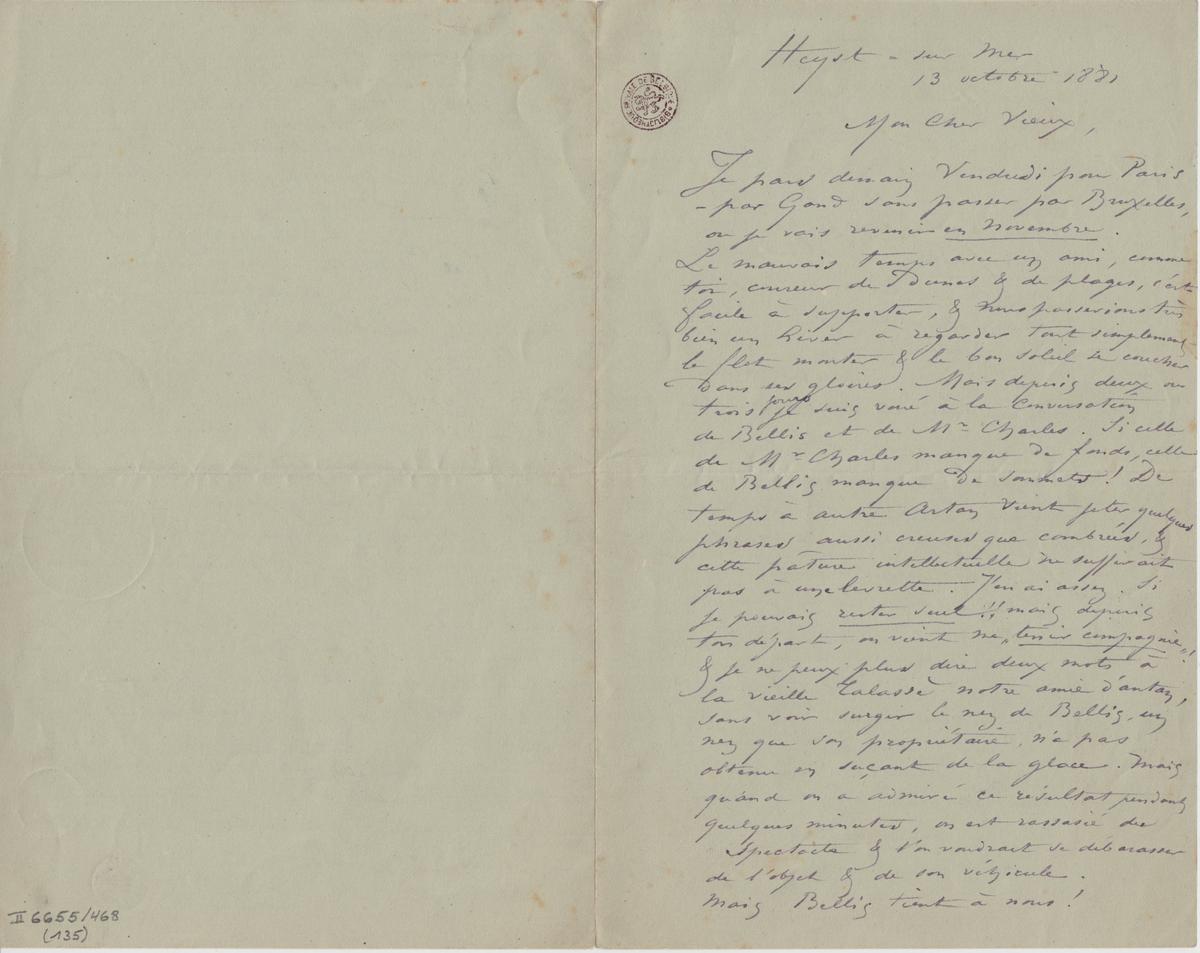 Heyst - sur Mer
13 octobre 1881
Mon Cher Vieux,
Je pars demain Vendredi pour Paris
- par Gand sans passer par Bruxelles,
ou je vais revenir en Novembre.
Le mauvais temps avec un ami, comme
toi, coureur de Dunes & de plages, c'est
facile à supporter, & nous passerions très
bien un hiver à regarder tout simplement
le flot monter & le bon soleil se coucher
dans ses gloires. Mais depuis deux ou
trois jours je suis voué à la conversation
de Bellis et de Mr Charles. Si celle
de Mr Charles manque de fonds, celle
de Bellis manque de sommets! De
temps à autre Artan vient jeter quelques
phrases aussi creuses que cambrées, &
cette pâture intellectuelle ne suffirait
pas à une levrette. J'en ai assez. Si
je pouvais rester seul!! mais depuis
ton départ, on vient me „tenir compagnie"!
& je ne peux plus dire deux mots à
la vieille Talassè notre amie d'antan,
sans voir surgir le nez de Bellis, un
nez que son propriétaire n'a pas
obtenu en suçant de la glace. Mais
quand on a admiré ce résultat pendant
quelques minutes, on est rassasié du
spectacle & l'on voudrait se débarasser
de l'objet & de son véhicule.
Mais Bellis tient à nous!
BIBLIOTHÈQUE ROYALE DE BELGIQUE
II 6655/468
(135)